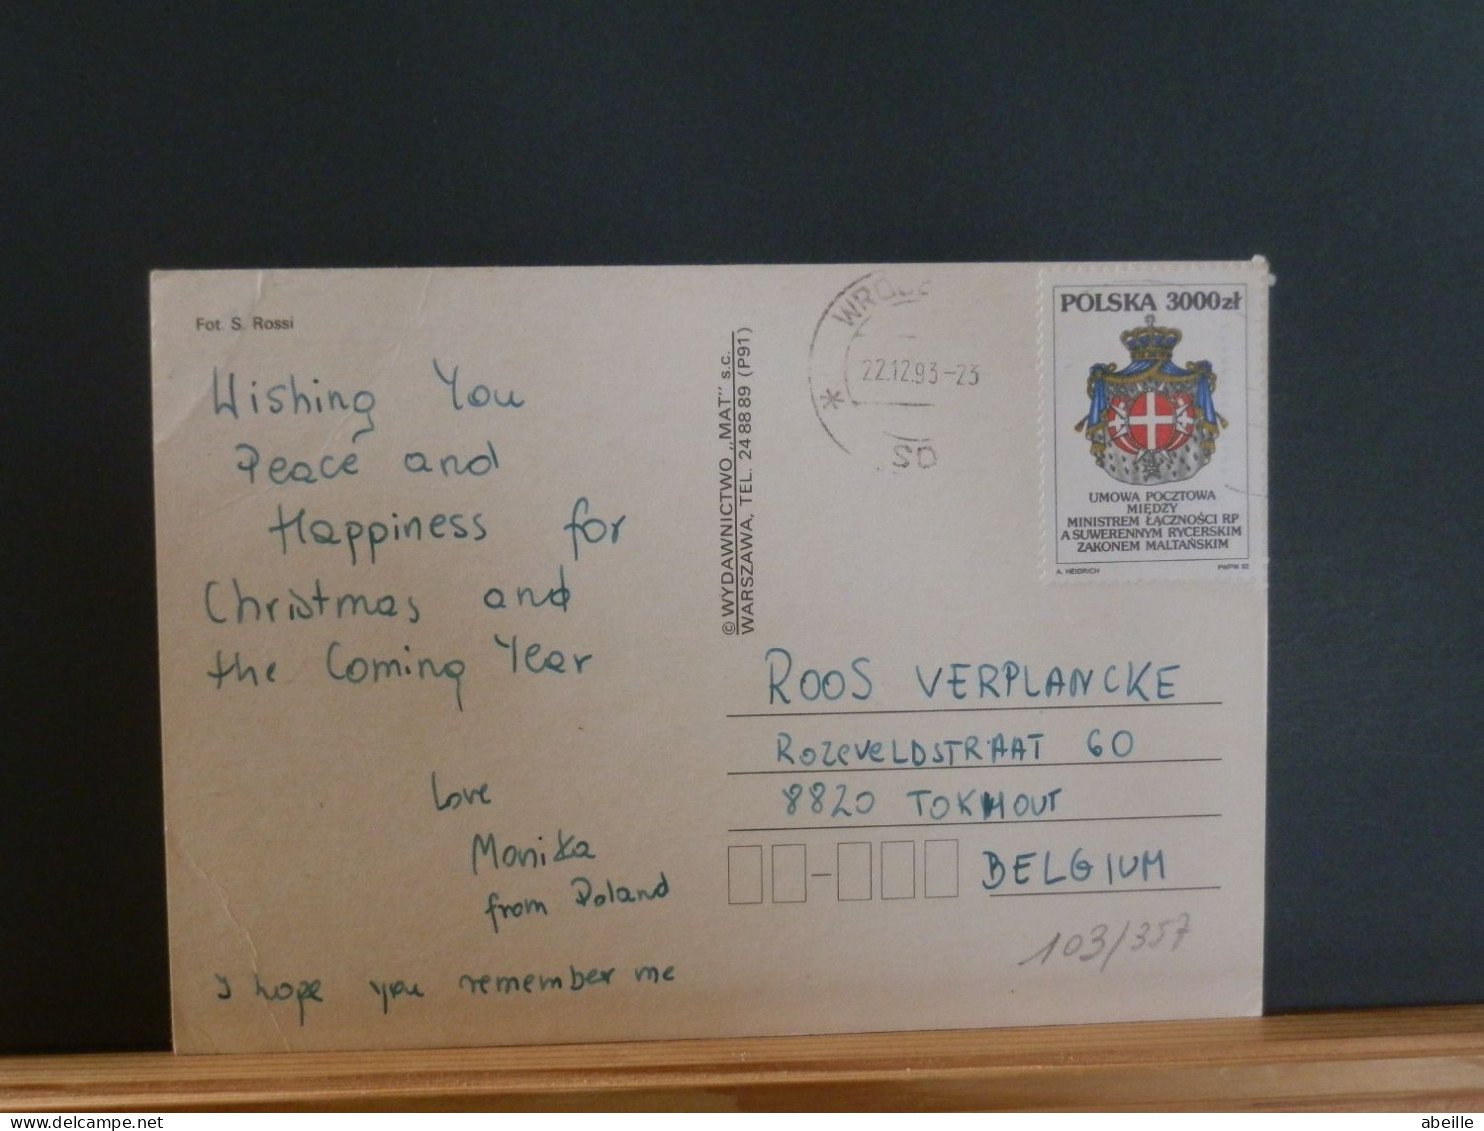 Fot. S. Rossi
Wishing You
Peace and
Happiness for
Christmas and
the Coming Year
Love
Monika
from Poland
I hope you remember me
© WYDAWNICTWO „MAT" s.c.
WARSZAWA, TEL. 24 88 89 (P91)
22.12.93-23
POLSKA 3000zł
UMOWA POCZTOWA
MIĘDZY
MINISTREM ŁĄCZNOŚCI RP
A SUWERENNYM RYCERSKIM
ZAKONEM MALTAŃSKIM
A. HEIDRICH PWPW 92
ROOS VERPLANCKE
ROZEVELDSTRAAT 60
8820 TOKHOUT
BELGIUM
103/357
abeille